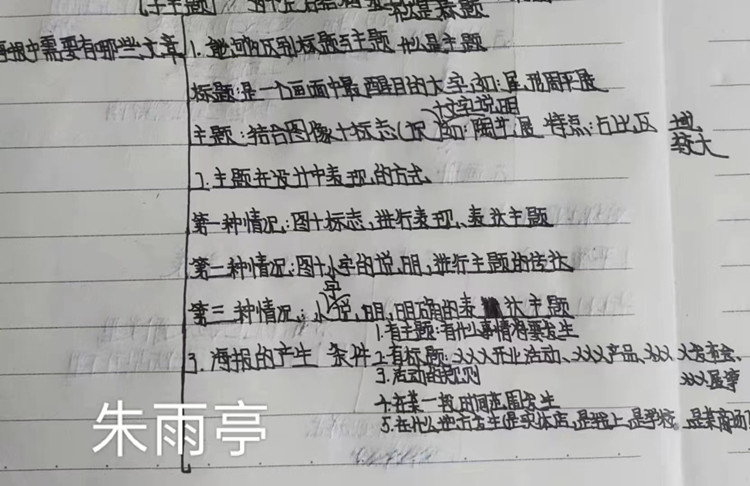 什么是标题
海报中需要有哪些文章
1. 如何区别标题与主题 什么是主题
标题:是一个画面中最醒目的大字,如:屠形周平展
十文字说明
主题:结合图像十标志(识)如:陶艺展 特点:占比区域
较大
2.主题在设计中表现的方式
第一种情况:图十标志,进行表现、表达主题
第二种情况:图十小字的说明,进行主题的传达
第三种情况:小字说明,明确的表达主题
3.海报的产生 条件
1.有主题:有什么事情将要发生
2.有标题:XXX开业活动、XXX产品、XXX发布会、
XXX展事
3.活动的规则
4.在某一段时间范围发生
5.在什么地方发生(是实体店,是线上,是学校,是某商场)
朱雨亭